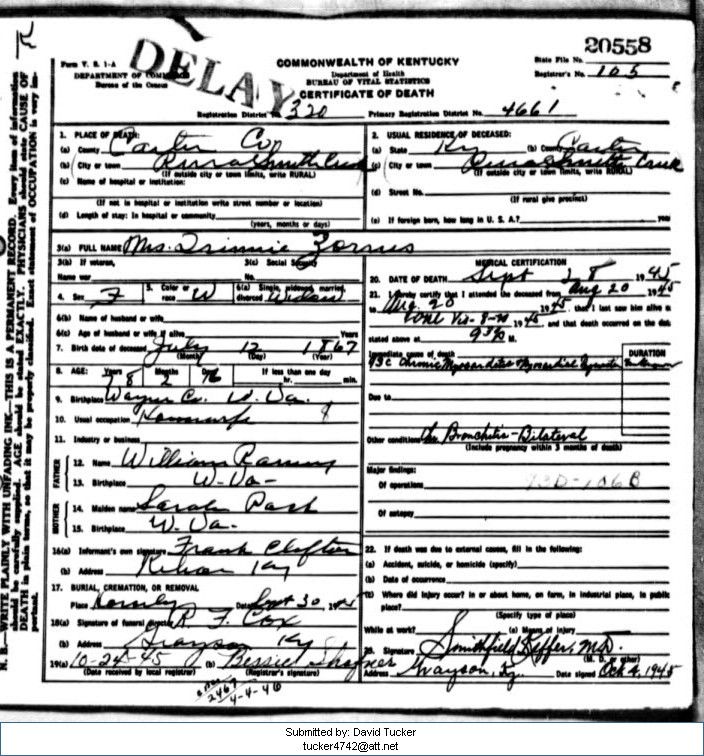 20558
Form V. S. 1-A
DEPARTMENT OF COMMERCE
Bureau of the Census
DELAY
COMMONWEALTH OF KENTUCKY
Department of Health
BUREAU OF VITAL STATISTICS
CERTIFICATE OF DEATH
State File No.
Registrar's No. 105
Registration District No. 320 Primary Registration District No. 4661
N. B.—WRITE PLAINLY WITH UNFADING INK—THIS IS A PERMANENT RECORD. Every item of information
should be carefully supplied. AGE should be stated EXACTLY. PHYSICIANS should state CAUSE OF
DEATH in plain terms, so that it may be properly classified. Exact statement of OCCUPATION is very im-
portant.
1. PLACE OF DEATH:
(a) County Carter Co
(b) City or town Rural Smith Creek
(If outside city or town limits, write RURAL)
(c) Name of hospital or institution:
(If not in hospital or institution write street number or location)
(d) Length of stay: In hospital or community
(years, months or days)
2. USUAL RESIDENCE OF DECEASED:
(a) State Ky (b) County Carter
(c) City or town Rural Smith Creek
(If outside city or town limits, write RURAL)
(d) Street No.
(If rural give precinct)
(e) If foreign born, how long in U. S. A.? years
3(a) FULL NAME Mrs.
3(b) If veteran,
Name war
3(c) Social Security
No.
4. Sex F 5. Color or race W 6(a) Single, widowed, married, divorced Widow
6(b) Name of husband or wife
6(c) Age of husband or wife if alive Years
7. Birth date of deceased July 12 1867
(Month) (Day) (Year)
8. AGE: Years 78 Months 2 Days 16 If less than one day
hr. min.
9. Birthplace Wayne Co. W. Va.
10. Usual occupation Housewife
11. Industry or business
FATHER
12. Name William
13. Birthplace W. Va-
MOTHER
14. Maiden name Sarah
15. Birthplace W. Va-
16(a) Informant's own signature Frank Clefton
(b) Address Ky
17. BURIAL, CREMATION, OR REMOVAL
Place Date Sept 30, 1945
18(a) Signature of funeral director R. F. Cox
(b) Address Grayson Ky
19(a) 10-24-45 (b) Bessie
(Date received by local registrar) (Registrar's signature)
2467
4-4-46
MEDICAL CERTIFICATION
20. DATE OF DEATH Sept 28 1945
21. I hereby certify that I attended the deceased from Aug 20 1945
to Aug 20 1945, that I last saw him alive on
1945, and that death occurred on the date
stated above at M.
Immediate cause of death
93c Chronic Myocarditis
DURATION
Unknown
Due to
Other conditions Ch Bronchitis - Bilateral
(Include pregnancy within 3 months of death)
Major findings:
Of operations 93D-106B
Of autopsy
22. If death was due to external causes, fill in the following:
(a) Accident, suicide, or homicide (specify)
(b) Date of occurrence
(c) Where did injury occur? in or about home, on farm, in industrial place, in public
place?
(Specify type of place)
While at work? (e) Means of injury
23. Signature Smithfield Keffer, M.D.
(M. D. or other)
Address Grayson, Ky. Date signed Oct 4, 1945
Submitted by: David Tucker
tucker4742@att.net